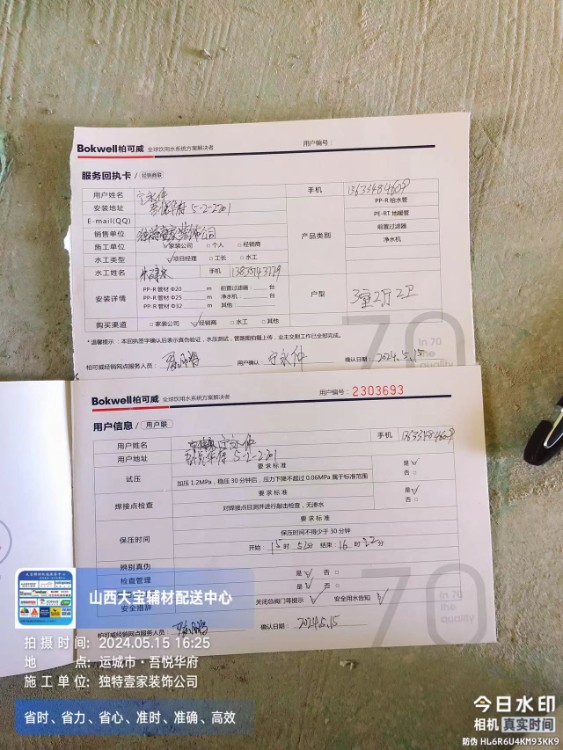 Bokwell柏可威 全球饮用水系统方案解决者 用户编号:
服务回执卡 / 经销商联
用户姓名 手机
安装地址 吾悦华府 5-2-2201 PP-R 给水管
E-mail(QQ) PE-RT 地暖管
销售单位 独特壹家装饰公司 产品类别 前置过滤器
施工单位 家装公司 个人 经销商 净水机
水工类型 项目经理 工长 水工
水工姓名 手机
安装详情 PP-R 管材 Φ20 m 前置过滤器: 台
PP-R 管材 Φ25 m 净水机: 台
PP-R 管材 Φ32 m 其他
户型 3室2厅2卫
购买渠道 家装公司 经销商 水工 其他
柏可威经销网点服务人员: 用户确认: 确认日期: 2024.5.15
70
in 70
the
quality
Bokwell柏可威 全球饮用水系统方案解决者 用户编号 2303693
用户信息 / 用户联
用户姓名 手机
用户地址 5-2-2201
试压 要求标准 是
加压 1.2MPa, 稳压 30 分钟后, 压力下降不超过 0.06MPa 属于标准范围 否
焊接点检查 要求标准 是
对焊接点目测并进行敲击检查, 无渗水 否
保压时间 要求标准
保压时间不得少于 30 分钟
开始: 15 时 52分 结束: 16 时 22分
辨别真伪 是 否
检查管理 是 否
安全培辞 关闭总阀门等提示 安全用水告知
柏可威经销网点服务人员: 确认日期: 2024.5.15
70
in 70
the
quality
山西大宝辅材配送中心
拍摄时间: 2024.05.15 16:25
地 点: 运城市·吾悦华府
施工单位: 独特壹家装饰公司
省时、省力、省心、准时、准确、高效
今日水印
相机 真实时间
防伪 HL6R6U4KM93KK9